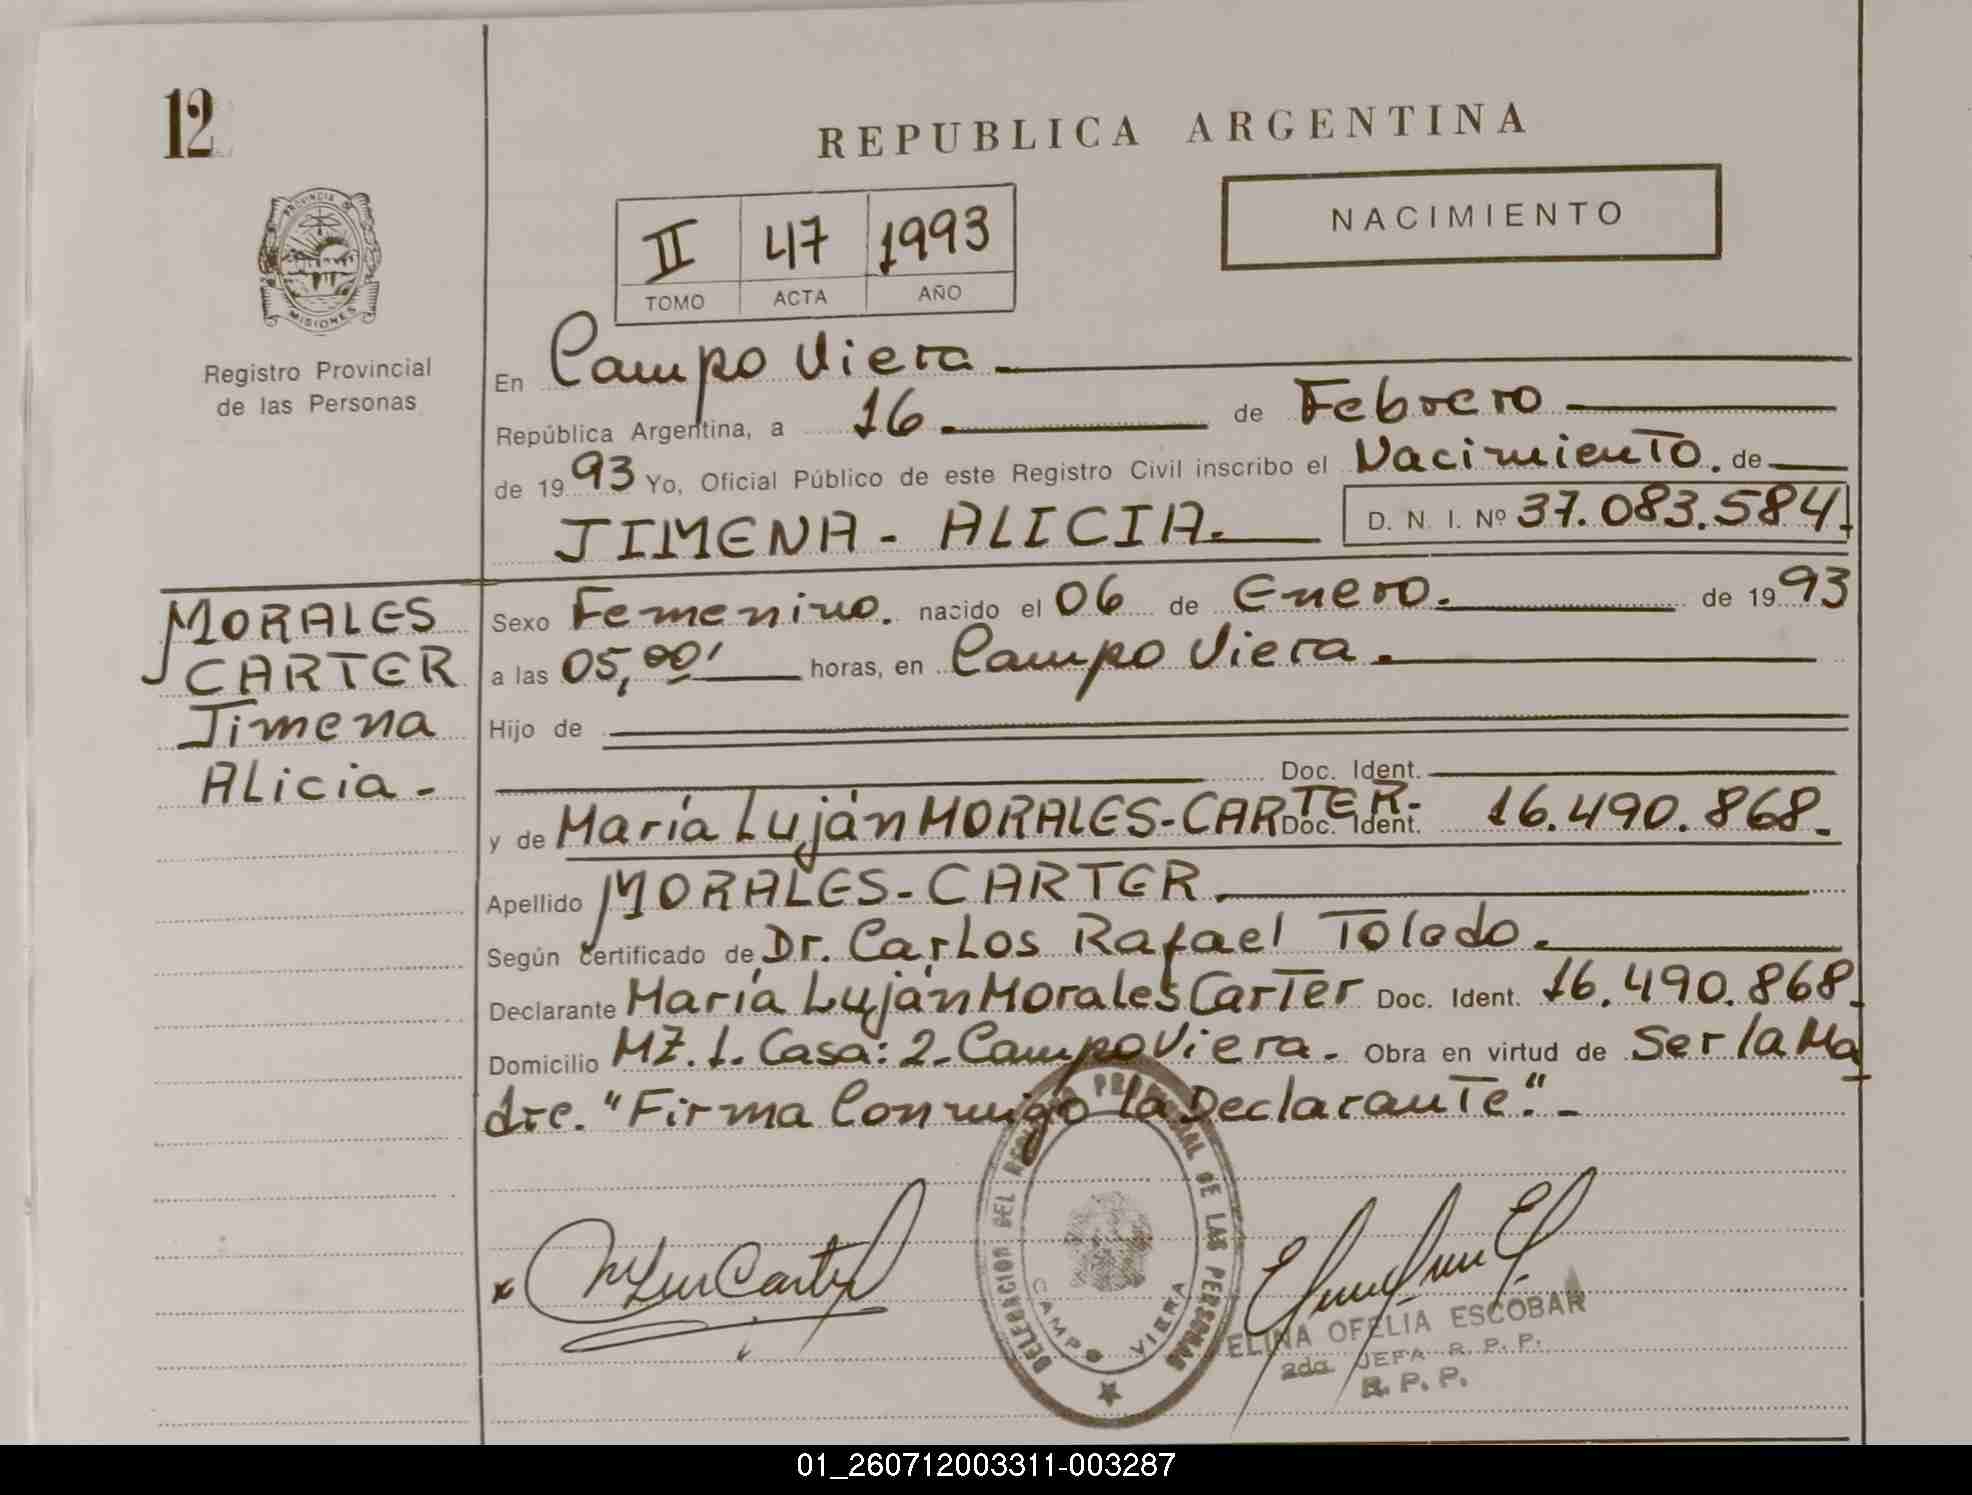 12
REPUBLICA ARGENTINA
PROVINCIA DE
MISIONES
Registro Provincial
de las Personas
II 47 1993
TOMO ACTA AÑO
NACIMIENTO
En Campo Viera
República Argentina, a 16 de Febrero
de 19 93 Yo, Oficial Público de este Registro Civil inscribo el Nacimiento. de
JIMENA - ALICIA. D. N. I. Nº 37.083.584.
MORALES
CARTER
Jimena
Alicia -
Sexo Femenino. nacido el 06 de Enero. de 19 93
a las 05,00' horas, en Campo Viera.
Hijo de
Doc. Ident.
y de María Luján MORALES-CARTER. Doc. Ident. 16.490.868.
Apellido MORALES-CARTER.
Según certificado de Dr. Carlos Rafael Toledo.
Declarante María Luján Morales Carter Doc. Ident. 16.490.868.
Domicilio MZ. 1. Casa: 2- Campo Viera. Obra en virtud de Ser la Ma
dre. "Firma Conmigo la Declarante".-
DELEGACION DEL REGISTRO PROVINCIAL DE LAS PERSONAS
CAMPO VIERA
ELINA OFELIA ESCOBAR
2da. JEFA R. P. P.
R. P. P.
01_260712003311-003287